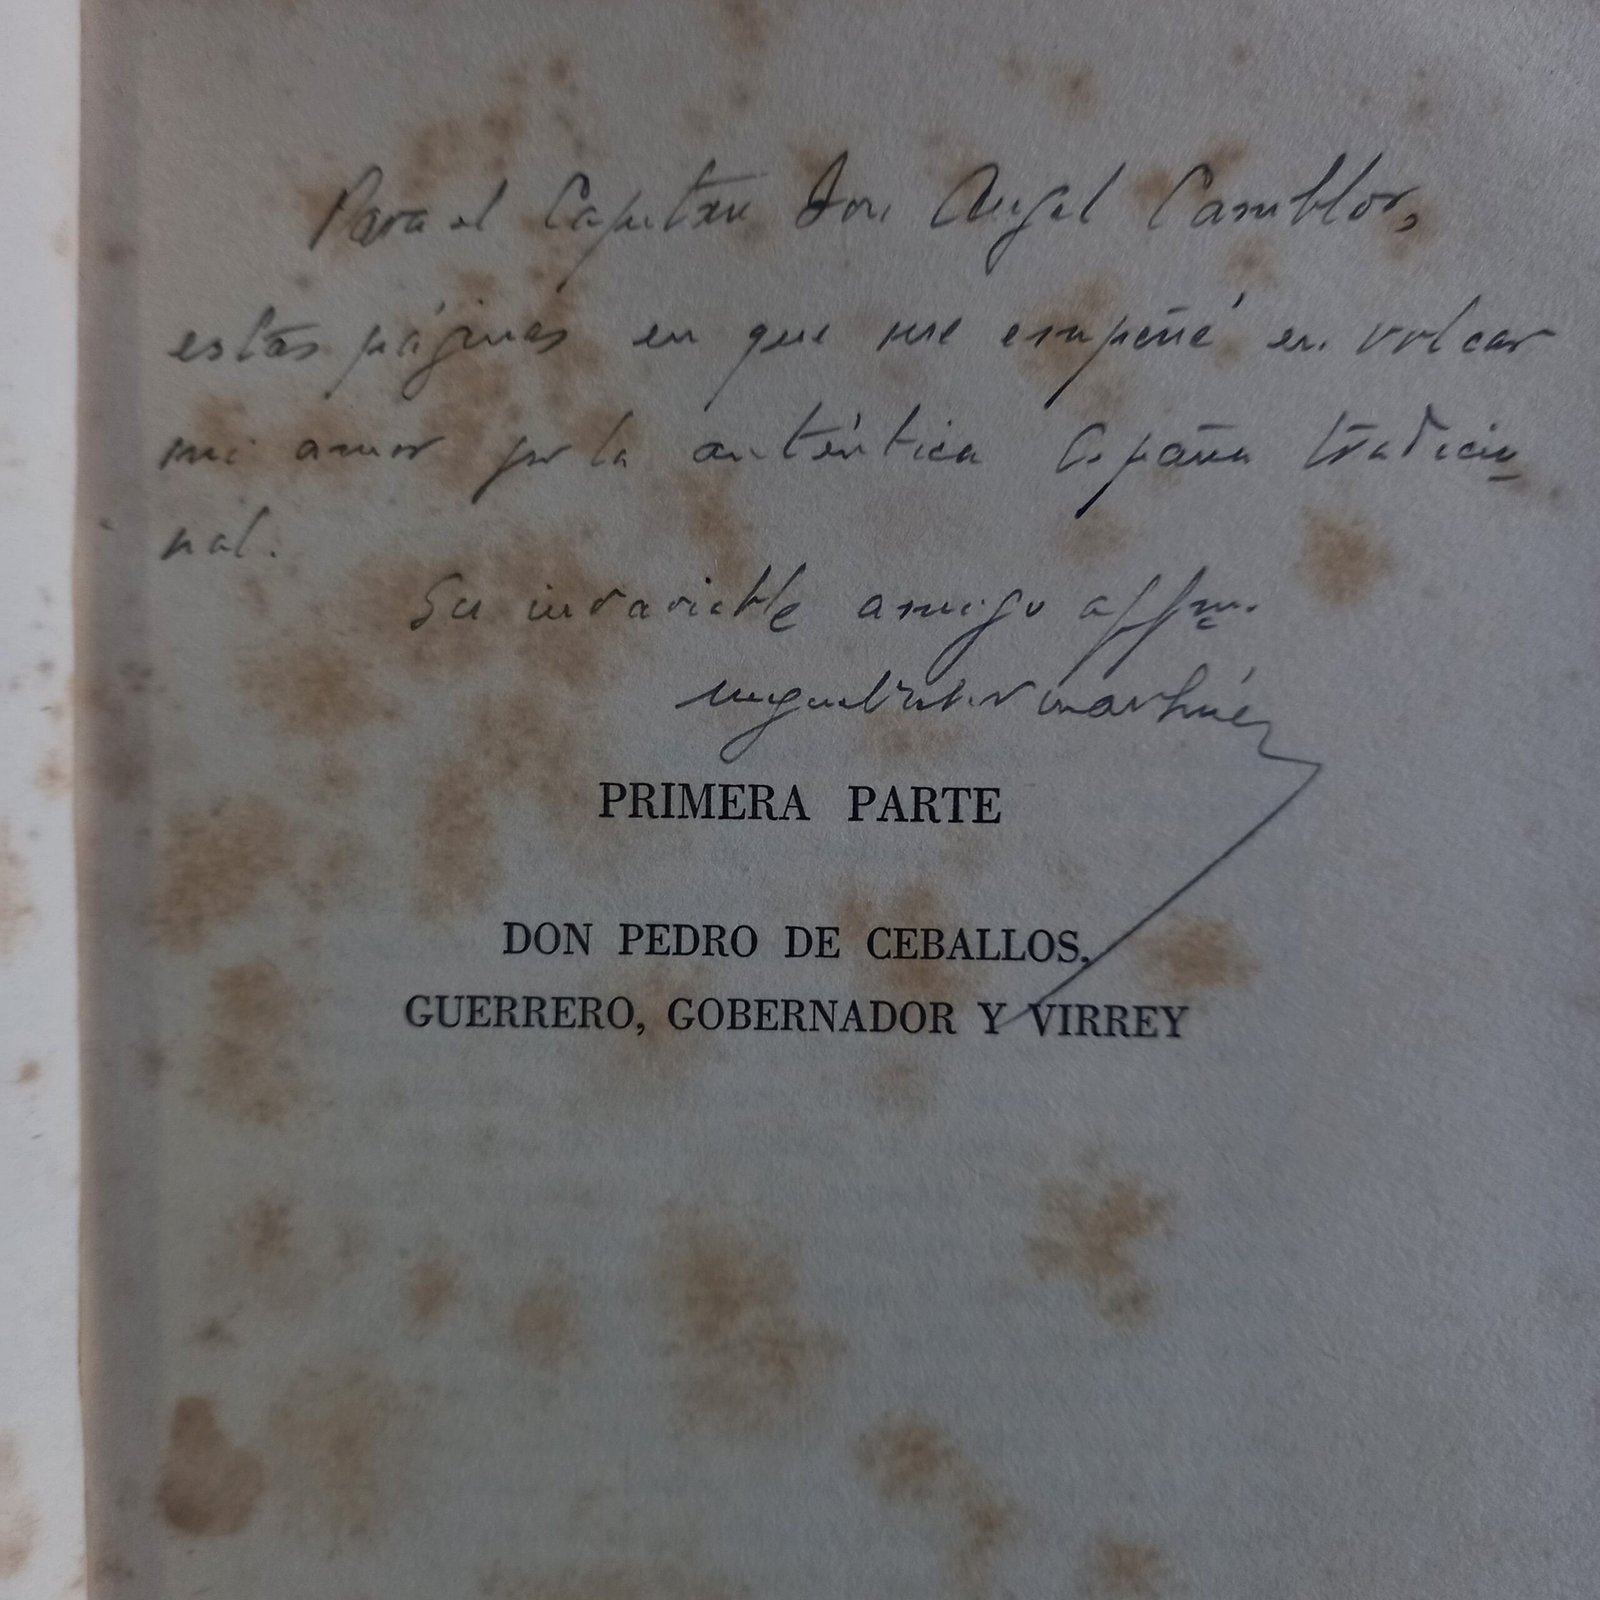 Para el Capitán Don Angel Camblor,
estas páginas en que me empeñé en volcar
mi amor por la auténtica España tradicio
nal.
Su invariable amigo affmo.
Miguel Martínez
PRIMERA PARTE
DON PEDRO DE CEBALLOS,
GUERRERO, GOBERNADOR Y VIRREY